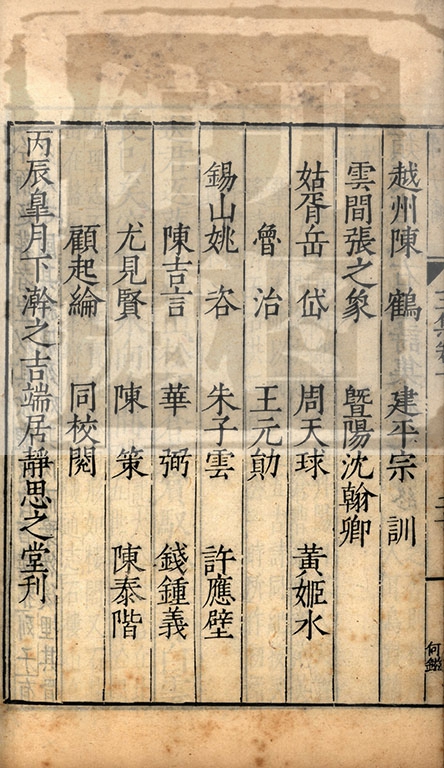 越州陳鶴 建平宗訓
雲間張之象 暨陽沈翰卿
姑胥岳岱 周天球 黃姬水
魯治 王元勛
錫山姚咨 朱子雲 許應壁
陳吉言 華弼 錢鍾義
尤見賢 陳策 陳泰階
顧起綸 同校閱
丙辰臯月下澣之吉端居靜思之堂刋
何鑑